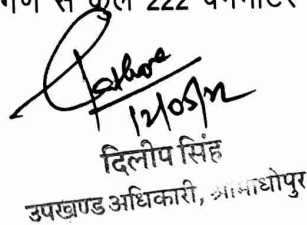 से कुल 222 वर्गमीटर
12/05/22
दिलीप सिंह
उपखण्ड अधिकारी, श्रीमाधोपुर